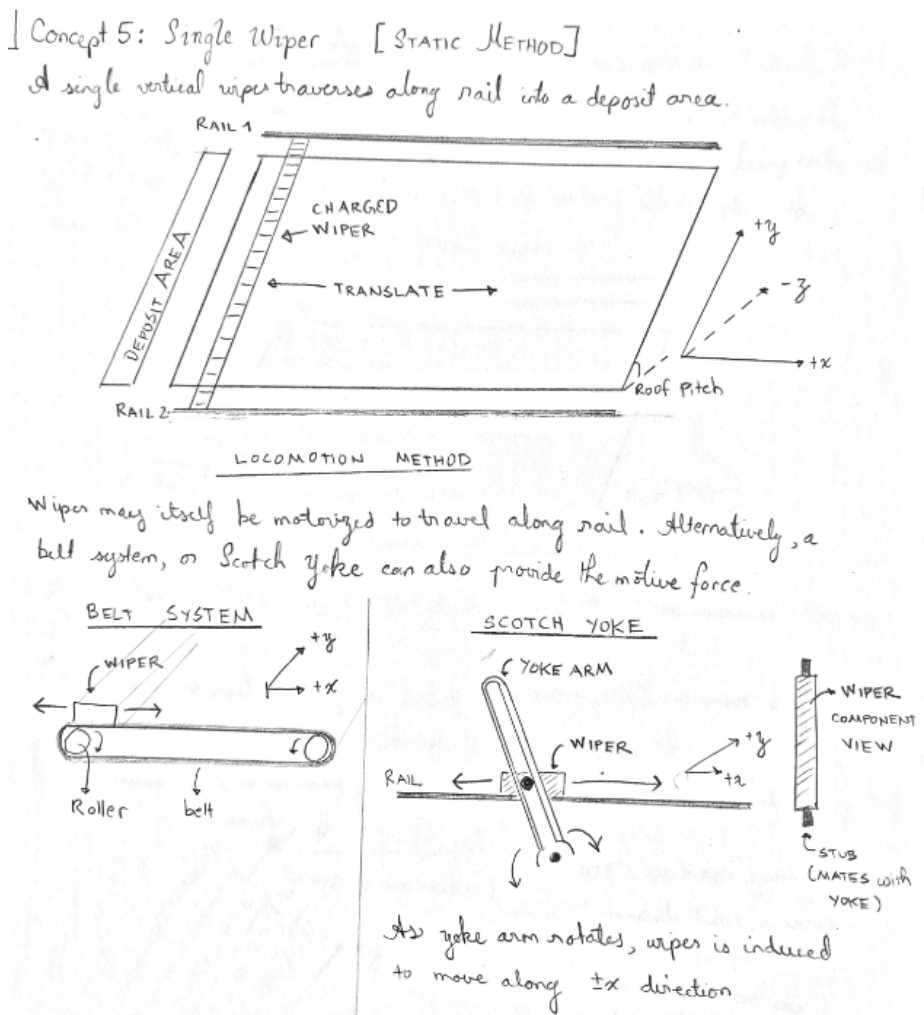 Concept 5: Single Wiper [STATIC METHOD]
A single vertical wiper traverses along rail into a deposit area.
RAIL 1
CHARGED
WIPER
DEPOSIT AREA
TRANSLATE
+y
-z
+x
Roof Pitch
RAIL 2
LOCOMOTION METHOD
Wiper may itself be motorized to travel along rail. Alternatively, a
belt system, or Scotch Yoke can also provide the motive force.
BELT SYSTEM
WIPER
+y
+x
Roller
belt
SCOTCH YOKE
YOKE ARM
WIPER
RAIL
+y
+x
WIPER
COMPONENT
VIEW
STUB
(MATES with
YOKE)
As yoke arm rotates, wiper is induced
to move along ±x direction